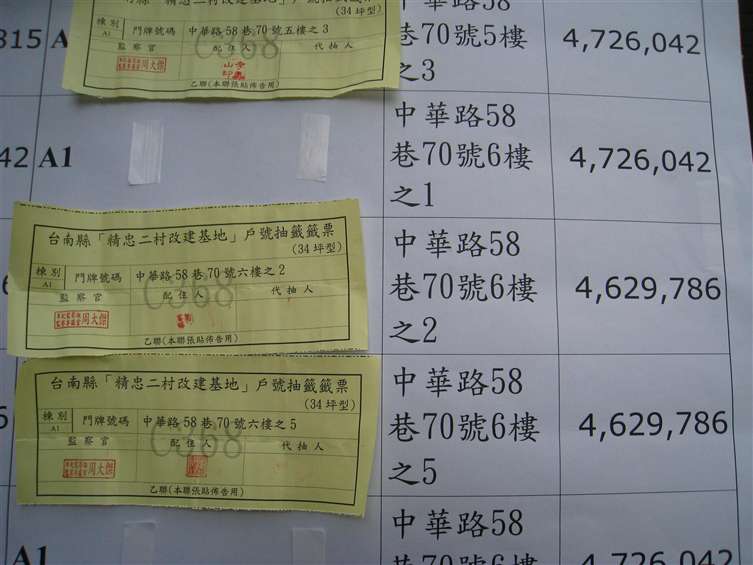 815 A
台南縣「精忠二村改建基地」戶號抽籤籤票
(34 坪型)
棟別 門牌號碼 中華路 58 巷 70 號五樓之 3
A1
監察官 配住人 代抽人
C368
周大傑
乙聯(本聯張貼佈告用)
巷70號5樓
之3
4,726,042
42 A1
中華路58
巷70號6樓
之1
4,726,042
台南縣「精忠二村改建基地」戶號抽籤籤票
(34 坪型)
棟別 門牌號碼 中華路 58 巷 70 號六樓之 2
A1
監察官 配住人 代抽人
C368
周大傑
乙聯(本聯張貼佈告用)
中華路58
巷70號6樓
之2
4,629,786
台南縣「精忠二村改建基地」戶號抽籤籤票
(34 坪型)
棟別 門牌號碼 中華路 58 巷 70 號六樓之 5
A1
監察官 配住人 代抽人
C368
周大傑
乙聯(本聯張貼佈告用)
中華路58
巷70號6樓
之5
4,629,786
A1
中華路58
巷70號6樓
4,726,042